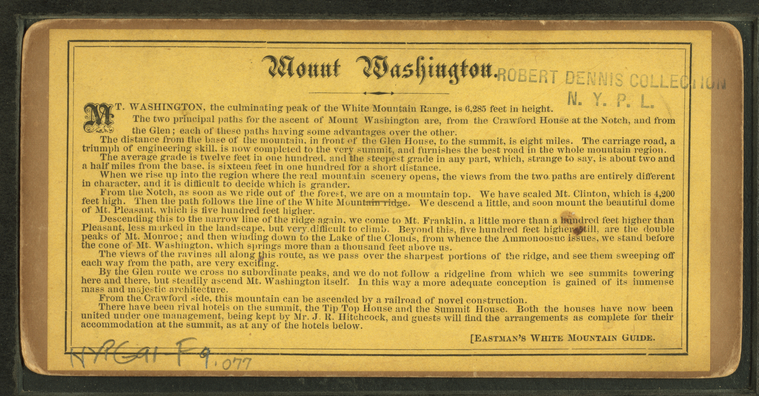 Mount Washington.
ROBERT DENNIS COLLECTION
N. Y. P. L.
MT. WASHINGTON, the culminating peak of the White Mountain Range, is 6,285 feet in height.
The two principal paths for the ascent of Mount Washington are, from the Crawford House at the Notch, and from
the Glen; each of these paths having some advantages over the other.
The distance from the base of the mountain, in front of the Glen House, to the summit, is eight miles. The carriage road, a
triumph of engineering skill, is now completed to the very summit, and furnishes the best road in the whole mountain region.
The average grade is twelve feet in one hundred, and the steepest grade in any part, which, strange to say, is about two and
a half miles from the base, is sixteen feet in one hundred for a short distance.
When we rise up into the region where the real mountain scenery opens, the views from the two paths are entirely different
in character, and it is difficult to decide which is grander.
From the Notch, as soon as we ride out of the forest, we are on a mountain top. We have scaled Mt. Clinton, which is 4,200
feet high. Then the path follows the line of the White Mountain ridge. We descend a little, and soon mount the beautiful dome
of Mt. Pleasant, which is five hundred feet higher.
Descending this to the narrow line of the ridge again, we come to Mt. Franklin, a little more than a hundred feet higher than
Pleasant, less marked in the landscape, but very difficult to climb. Beyond this, five hundred feet higher still, are the double
peaks of Mt. Monroe; and then winding down to the Lake of the Clouds, from whence the Ammonoosuc issues, we stand before
the cone of Mt. Washington, which springs more than a thousand feet above us.
The views of the ravines all along this route, as we pass over the sharpest portions of the ridge, and see them sweeping off
each way from the path, are very exciting.
By the Glen route we cross no subordinate peaks, and we do not follow a ridgeline from which we see summits towering
here and there, but steadily ascend Mt. Washington itself. In this way a more adequate conception is gained of its immense
mass and majestic architecture.
From the Crawford side, this mountain can be ascended by a railroad of novel construction.
There have been rival hotels on the summit, the Tip Top House and the Summit House. Both the houses have now been
united under one management, being kept by Mr. J. R. Hitchcock, and guests will find the arrangements as complete for their
accommodation at the summit, as at any of the hotels below.
[EASTMAN'S WHITE MOUNTAIN GUIDE.
NYPG91-F9.077